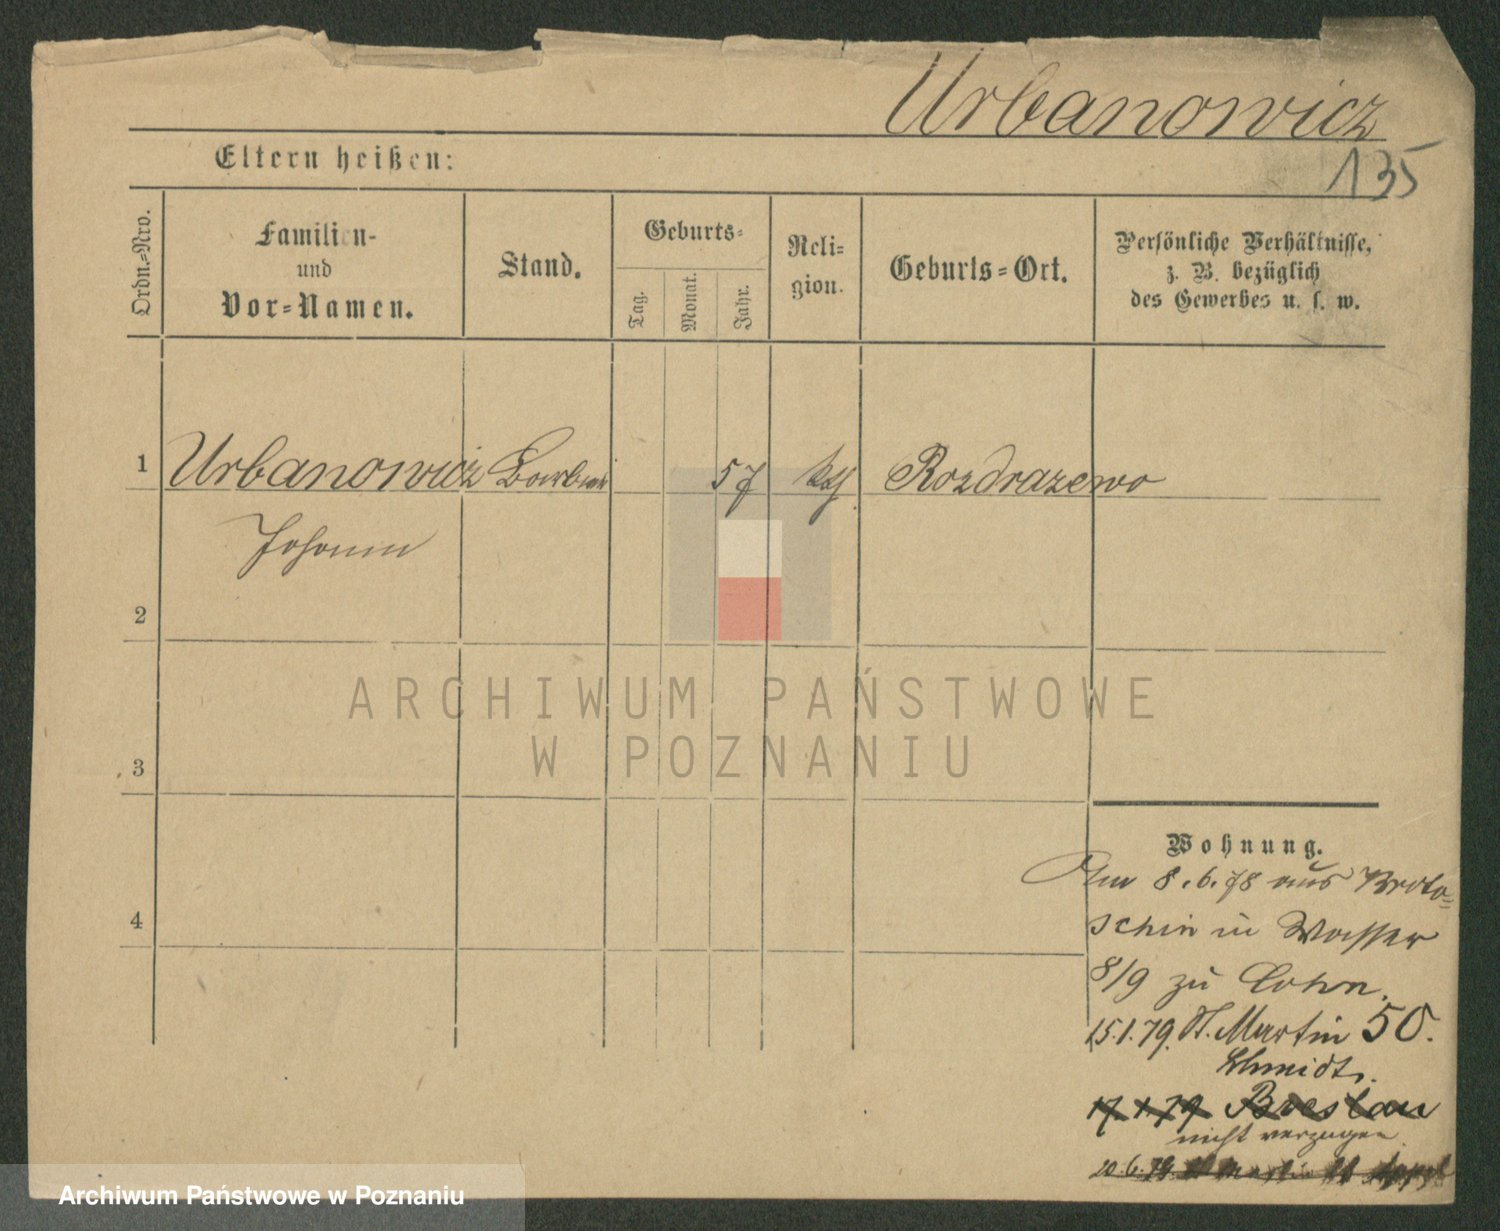 Urbanowicz
135
Eltern heißen:
Ordn.=Nro.
Familien-
und
Vor=Namen.
Stand.
Geburts=
Tag.
Monat.
Jahr.
Reli=
gion.
Geburts=Ort.
Persönliche Verhältnisse,
z. B. bezüglich
des Gewerbes u. s. w.
1
Urbanowicz
57
kth
Rozdrazewo
Johann
2
ARCHIWUM PAŃSTWOWE
W POZNANIU
3
4
Wohnung.
8.6.78 aus Kroto=
schin in Wasser
8/9 zu Cohn.
15.1.79. St. Martin 50.
Schmidt.
17.1.79 Breslau
nicht verzogen
20.6.79 St Martin
Archiwum Państwowe w Poznaniu